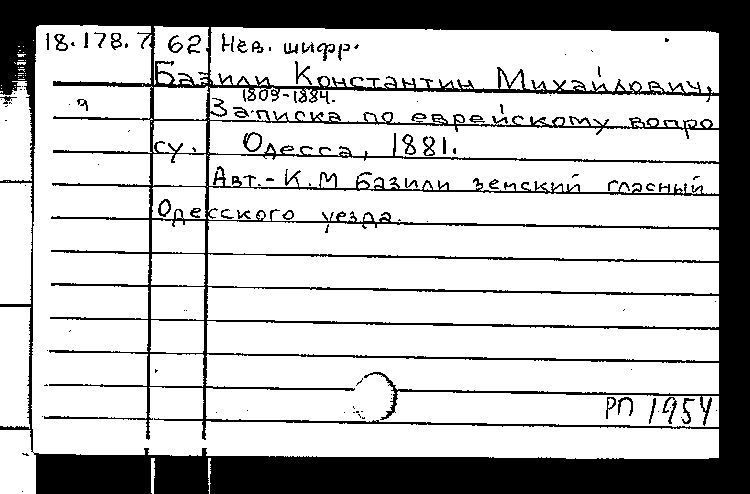 18.178.7 62. Нев. шифр.
Базили Константин Михайлович,
1809-1884.
Записка по еврейскому вопро
су. Одесса, 1881.
Авт.- К.М Базили земский гласный
Одесского уезда.
РП 1954